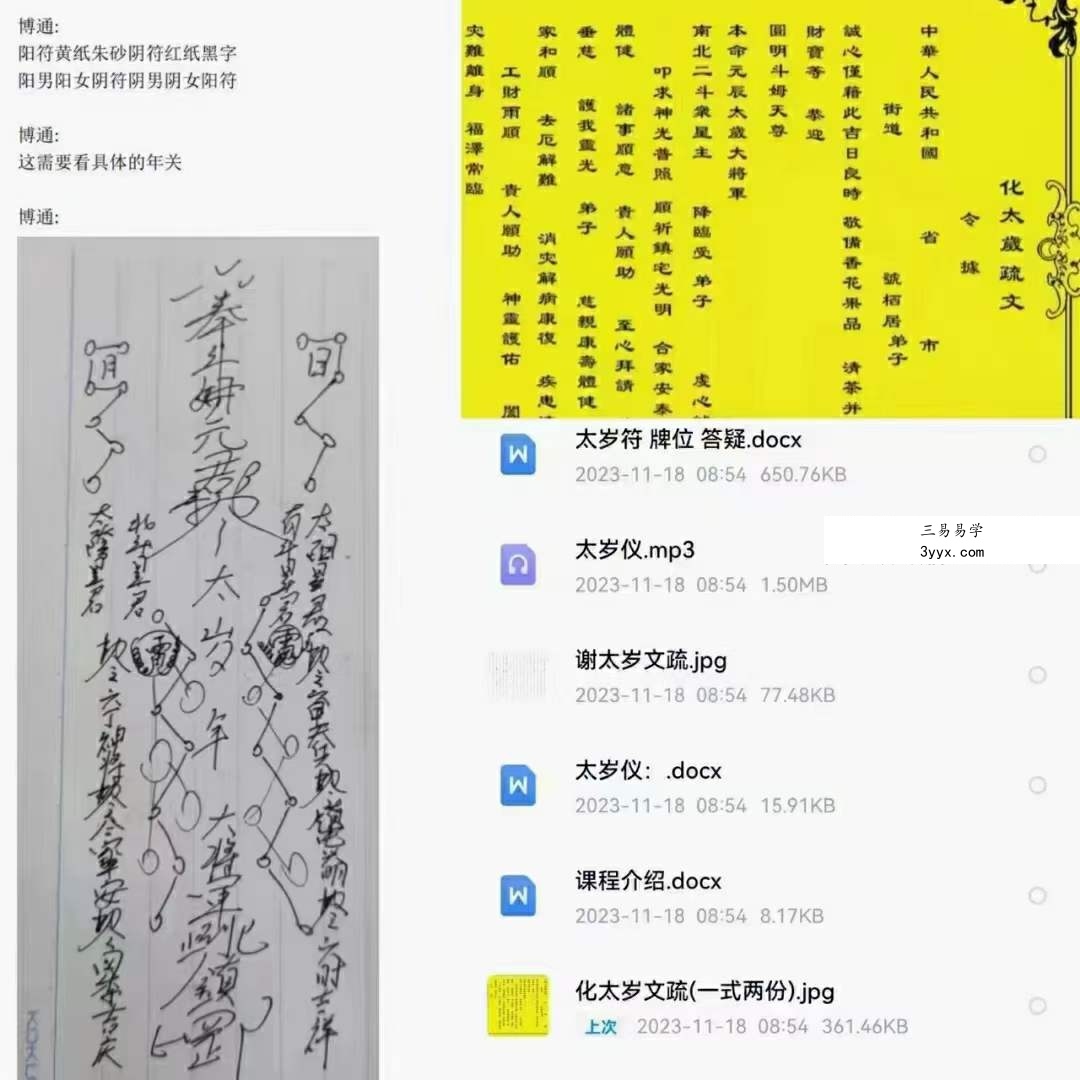 博通:
阳符黄纸朱砂阴符红纸黑字
阳男阳女阴符阴男阴女阳符
博通:
这需要看具体的年关
博通:
日
月
奉斗姆元君
太岁
年
大将军
太阳星君
南斗星君
北斗星君
太阴星君
化太歲疏文
令據
中華人民共和國 省 市
街道 號栖居弟子
誠心僅藉此吉日良時 敬備香花果品 清茶并
財寶等 恭迎
圓明斗姆天尊
本命元辰太歲大將軍
南北二斗衆星主 降臨受 弟子 虔心
叩求神光普照 願祈鎮宅光明 合家安泰
體健 諸事順意 貴人願助 至心拜請
垂慈 護我靈光 弟子 慈親康壽體健
家和順 去厄解難 消灾解病康復 疾患
工財雨順 貴人願助 神靈護佑 闔
灾難離身 福澤常臨
太岁符 牌位 答疑.docx
2023-11-18 08:54 650.76KB
太岁仪.mp3
2023-11-18 08:54 1.50MB
三易易学
3yyx.com
谢太岁文疏.jpg
2023-11-18 08:54 77.48KB
太岁仪：.docx
2023-11-18 08:54 15.91KB
课程介绍.docx
2023-11-18 08:54 8.17KB
化太岁文疏(一式两份).jpg
上次 2023-11-18 08:54 361.46KB